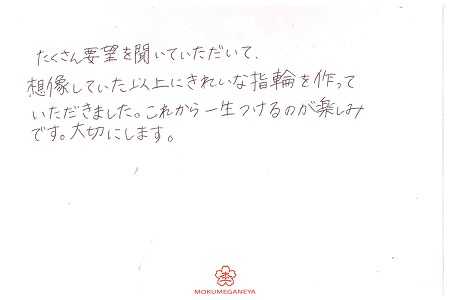 たくさん要望を聞いていただいて、
想像していた以上にきれいな指輪を作って
いただきました。これから一生つけるのが楽しみ
です。大切にします。
MOKUMEGANEYA